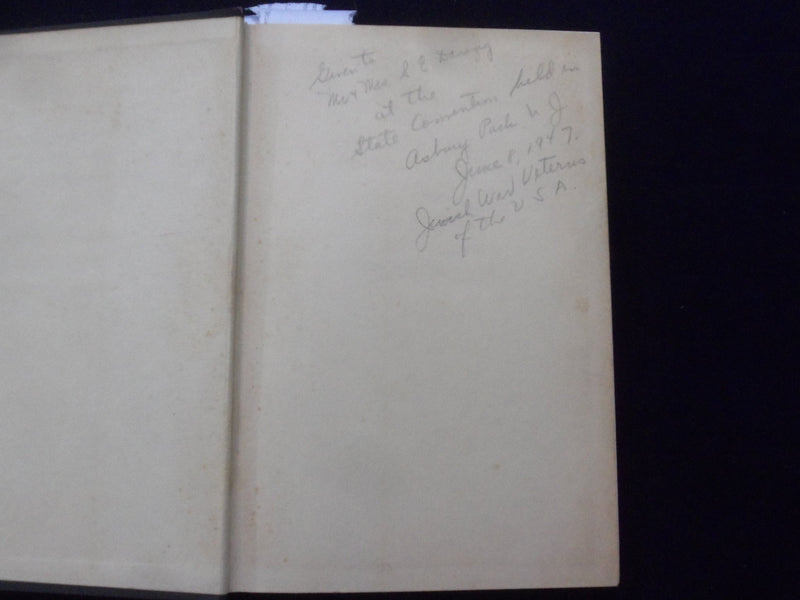 Given to
Mr & Mrs S E
at the
State Convention held in
Asbury Park N J
June 8, 1947.
Jewish War Veterans
of the U S A.